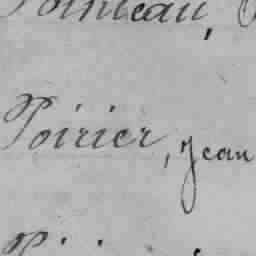 Pointeau,
Poirier, Jean